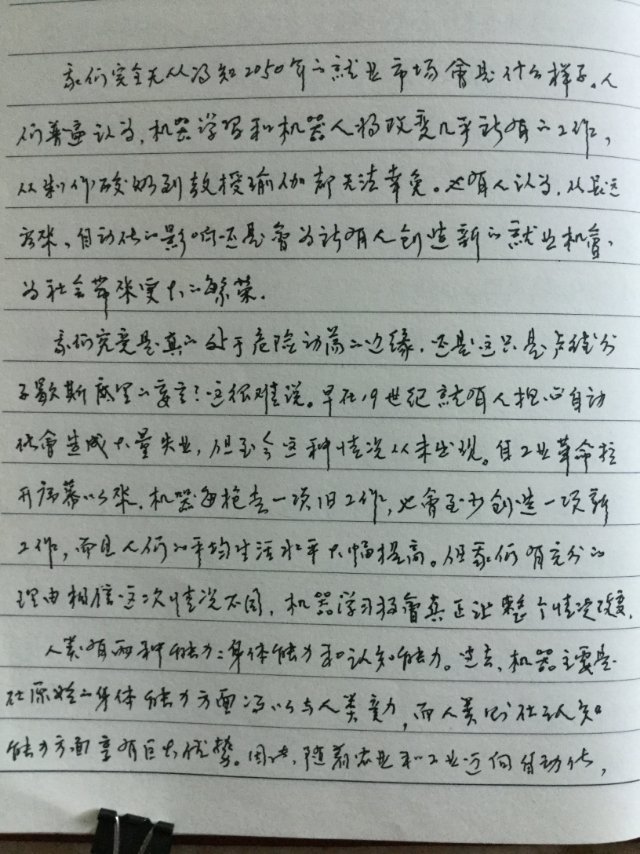 我们完全无从得知2050年的就业市场會是什么样子。人
们普遍认为，机器学习和机器人将改变几乎所有的工作，
从制作酸奶到教授瑜伽都无法幸免。也有人认为，从长远
看来，自动化的影响还是會为所有人创造新的就业机會，
为社会带来更大的繁荣。
我们究竟是真的处于危险动荡的边缘，还是这只是卢德分
子歇斯底里的妄言？这很难说。早在19世纪就有人担心自动
化會造成大量失业，但至今这种情况从未出现。自工业革命拉
开序幕以来，机器每抢走一项旧工作，也會至少创造一项新
工作，而且人们的平均生活水平大幅提高。但我们有充分的
理由相信这次情况不同，机器学习将會真正让整个情况改变。
人类有两种能力：身体能力和认知能力。过去，机器主要是
在原始的身体能力方面得以与人类竞力，而人类则在认知
能力方面享有巨大优势。因此，随着农业和工业迈向自动化，